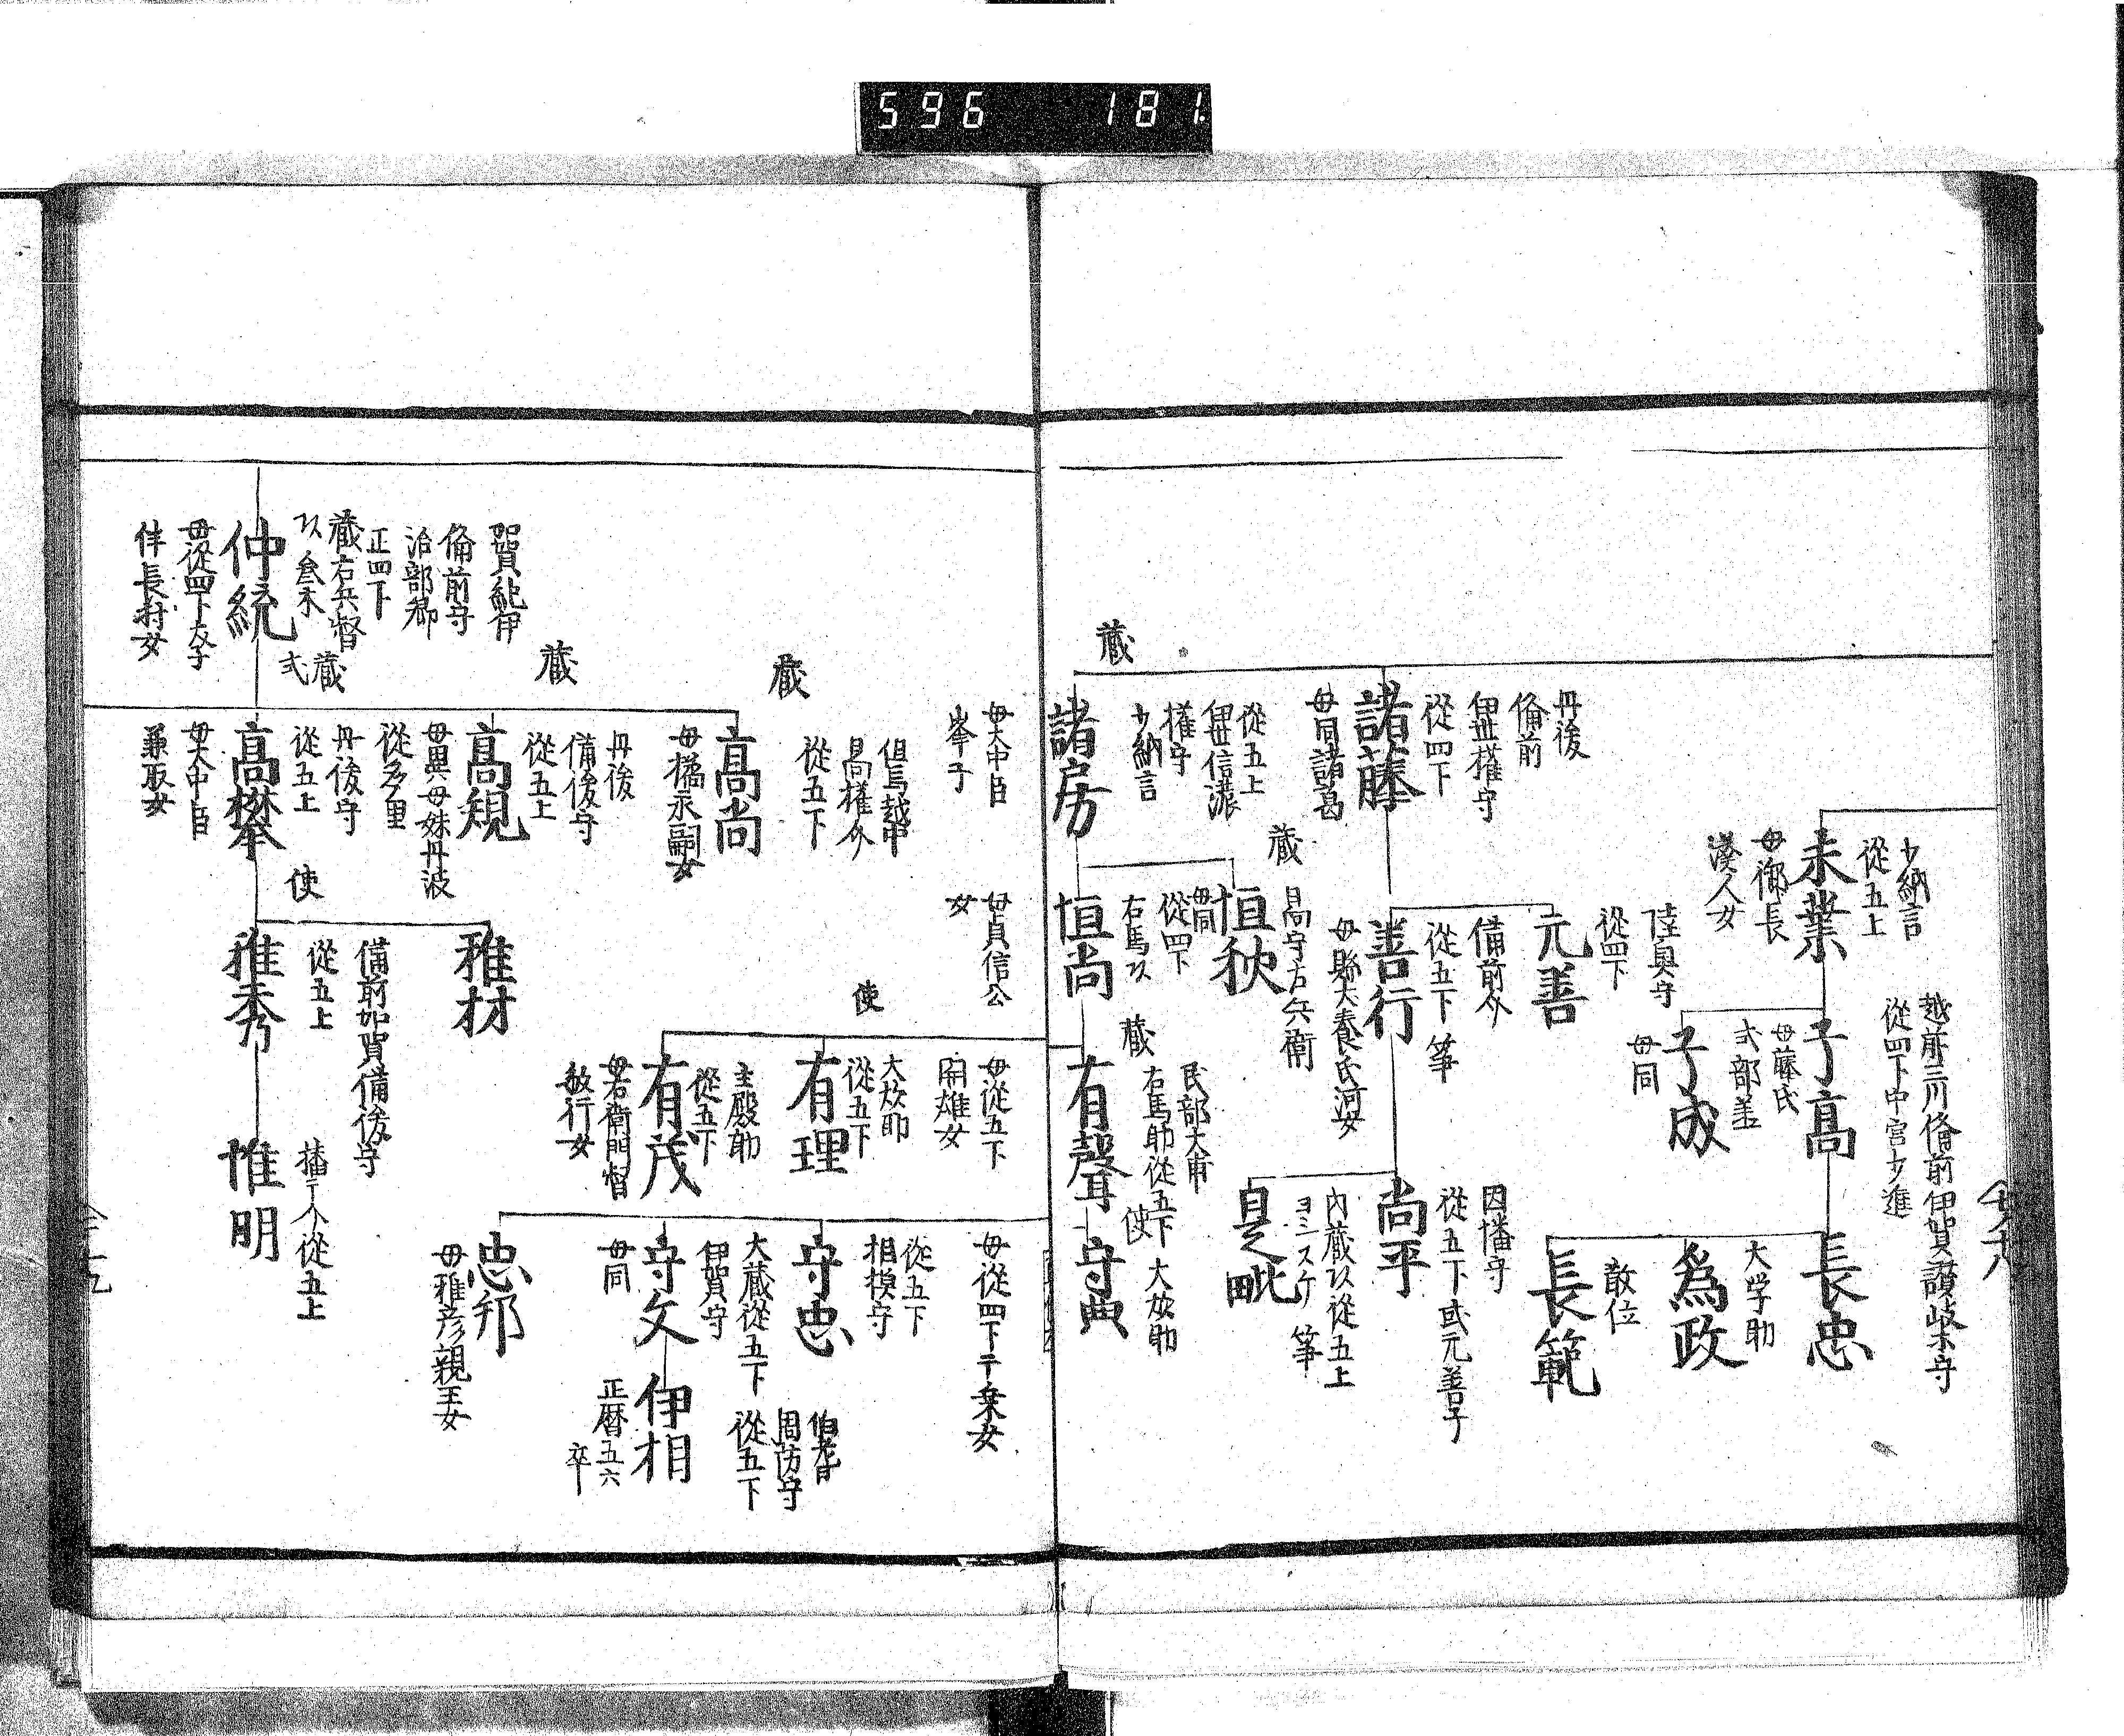 596 181
少納言
從五上
未業
母御長
湊人女
越前三川俻前伊賀讃岐木守
從四下中宮少進
子高
母藤氏
式部丞
子成
母同
長忠
大学助
為政
散位
長範
丹後
俻前
伊世權守
從四下
諸藤
母同諸葛
陸奥守
從四下
元善
備前介
從五下 筝
善行
母縣犬養氏河女
因幡守
從五下 或元善子
尚平
內蔵以從五上
ヨミスケ 筝
是毗
蔵
從五上
伊世信濃
權守
少納言
諸房
母大中臣
峯子
蔵
昌守右兵衛
恒秋
母同
從四下
右馬以
恒尚
母貞信公
女
蔵
民部大甫
右馬助從五下
有聲
母從五下
開雄女
使
大炊助
守典
母從四下千乗女
使
大炊助
從五下
有理
主殿助
從五下
有茂
母右衛門督
敏行女
從五下
相摸守
守忠
大蔵從五下
伊賀守
守文
母同
伯耆
周防守
從五下
伊相
正暦五六
卒
忠邦
母雅彦親王女
賀紀伊
俻前守
治部卿
正四下
蔵右兵督
以参木
仲統
母從四下友子
伴長村女
蔵
但馬越中
昌權介
從五下
高尚
母橘永嗣女
蔵
丹後
備後守
從五上
高規
母異母妹丹波
從多里
蔵
式
丹後守
從五上
高攀
母大中臣
兼取女
雅材
使
備前加賀備後守
從五上
雅秀
播丁介從五上
惟明